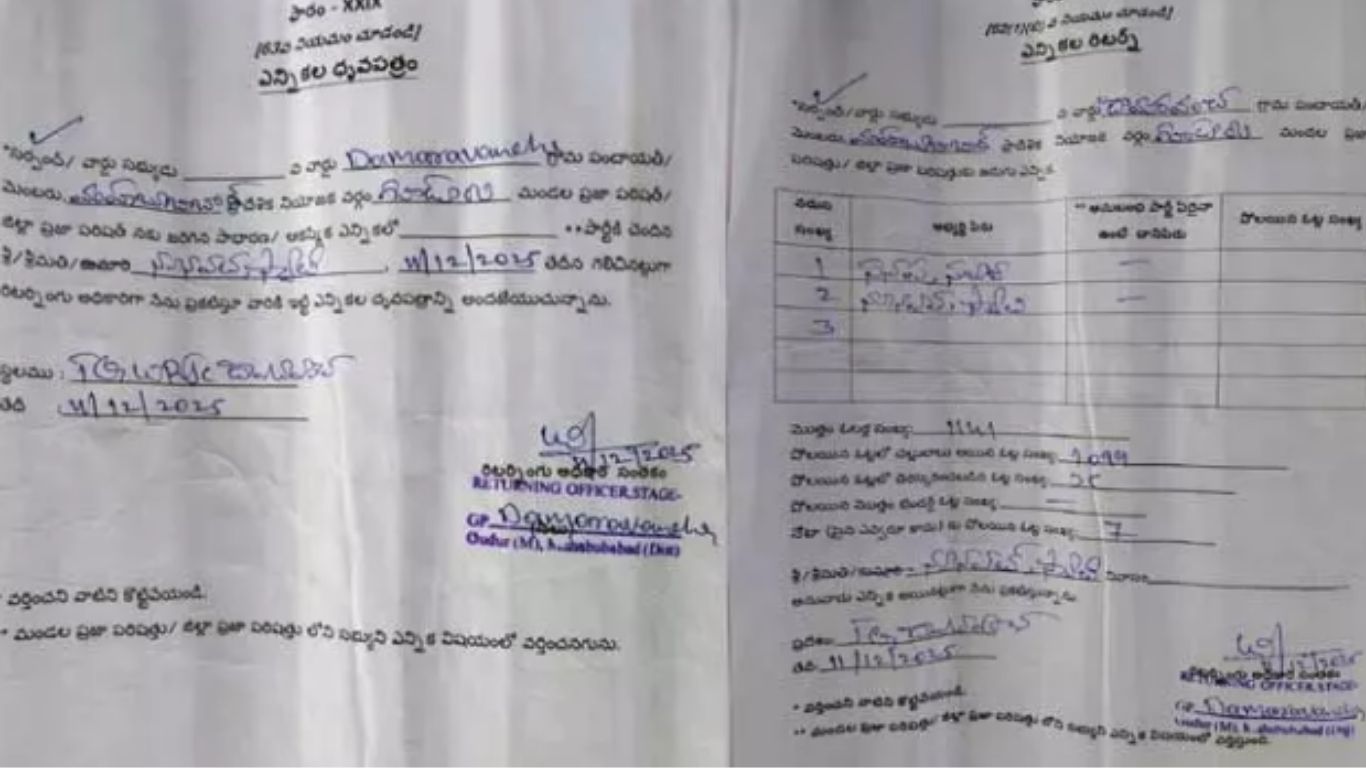 ఫారం - XXIX
[63వ నియమం చూడండి]
ఎన్నికల ధృవపత్రం
*సర్పంచ్/ వార్డు సభ్యుడు ____ వ వార్డు Damaravanch గ్రామ పంచాయతీ/
మెంబరు, ప్రాదేశిక నియోజక వర్గం గూడూరు మండల ప్రజా పరిషత్/
జిల్లా ప్రజా పరిషత్ నకు జరిగిన సాధారణ/ ఆకస్మిక ఎన్నికలో ____ **పార్టీకి చెందిన
శ్రీ/శ్రీమతి/కుమారి , 11/12/2025 తేదిన గెలిచినట్లుగా
రిటర్నింగు అధికారిగా నేను ప్రకటిస్తూ వారికి ఇట్టి ఎన్నికల ధృవపత్రాన్ని అందజేయుచున్నాను.
స్థలము :
తేది 11/12/2025
11/12/2025
రిటర్నింగు అధికారి సంతకం
RETURNING OFFICER STAGE-
GP Damaravancha
Gudur (M), Mahabubabad (Dist)
* వర్తించని వాటిని కొట్టివేయండి.
** మండల ప్రజా పరిషత్తు/ జిల్లా ప్రజా పరిషత్తు లోని సభ్యుని ఎన్నిక విషయంలో వర్తించనగును.
ఎన్నికల రిటర్న్
*సర్పంచ్/ వార్డు సభ్యుడు ____ వ వార్డు గ్రామ పంచాయతీ/
మెంబరు, ప్రాదేశిక నియోజక వర్గం గూడూరు మండల ప్రజా
పరిషత్తు/ జిల్లా ప్రజా పరిషత్తుకు జరుగు ఎన్నిక.
వరుస సంఖ్య
అభ్యర్థి పేరు
** అనుబంధ పార్టీ ఏదైనా ఉంటే దానిపేరు
పోలయిన ఓట్ల సంఖ్య
1 —
2 —
3
మొత్తం ఓటర్ల సంఖ్య: 1141
పోలయిన ఓట్లలో చెల్లుబాటు అయిన ఓట్ల సంఖ్య 1099
పోలయిన ఓట్లలో తిరస్కరించబడిన ఓట్ల సంఖ్య 25
పోలయిన మొత్తం టెండర్డ్ ఓట్ల సంఖ్య —
నోటా (పైన ఎవ్వరూ కాదు) కు పోలయిన ఓట్ల సంఖ్య 7
శ్రీ/శ్రీమతి/కుమారి నివాసం
అనువారు ఎన్నిక అయినట్లుగా నేను ప్రకటిస్తున్నాను.
ప్రదేశం:
తేది: 11/12/2025
11/12/2025
రిటర్నింగు అధికారి సంతకం
RETURNING OFFICER STAGE-
GP Damaravancha
Gudur (M), Mahabubabad (Dist)
* వర్తించని వాటిని కొట్టివేయండి.
** మండల ప్రజా పరిషత్తు/ జిల్లా ప్రజా పరిషత్తు లోని సభ్యుని ఎన్నిక విషయంలో వర్తిస్తుంది.